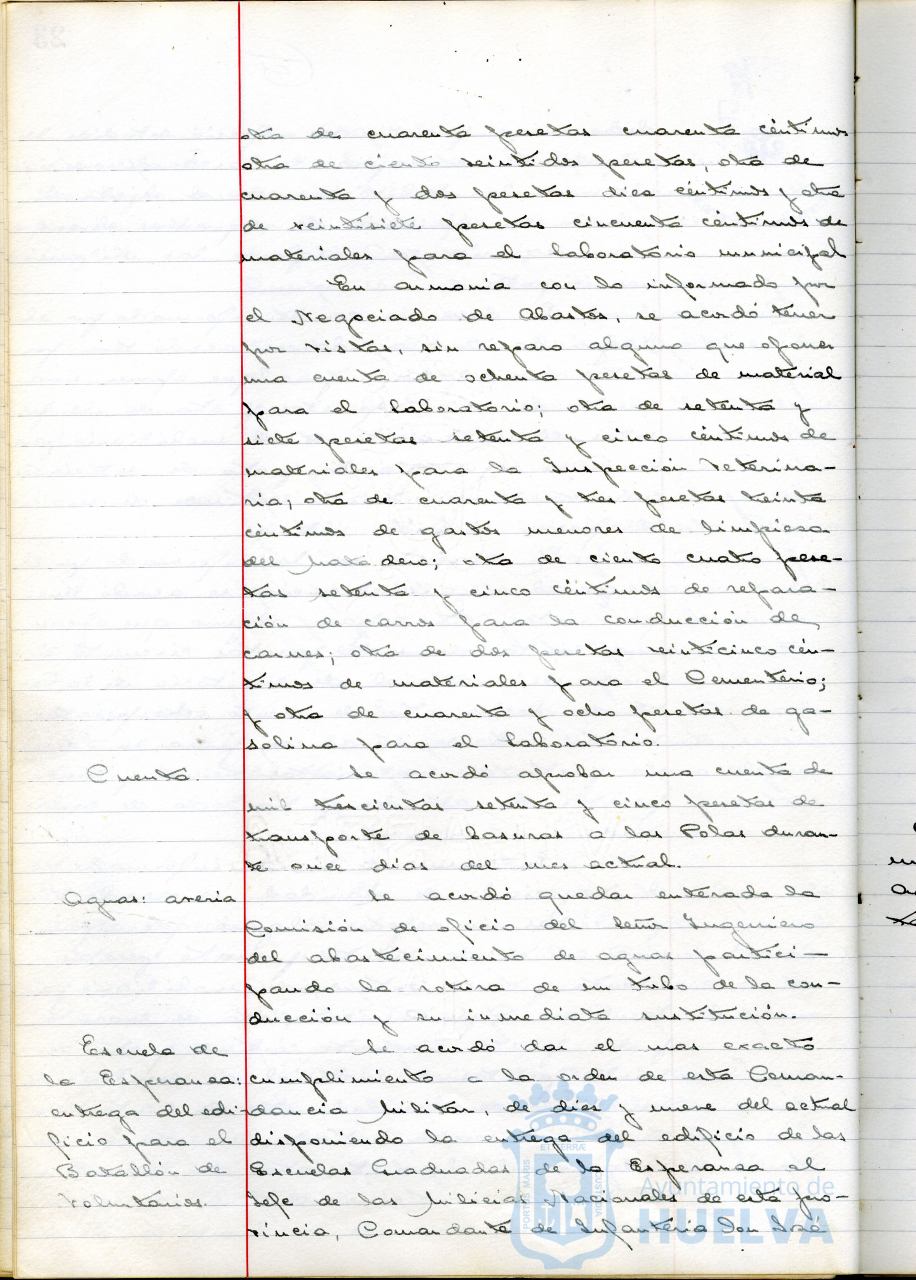 otra de cuarenta pesetas cuarenta céntimos
otra de ciento veintidos pesetas, otra de
cuarenta y dos pesetas diez céntimos y otra
de veintisiete pesetas cincuenta céntimos de
materiales para el laboratorio municipal
En armonia con lo informado por
el Negociado de Abastos, se acordó tener
por vistas, sin reparo alguno que oponer
una cuenta de ochenta pesetas de material
para el laboratorio; otra de setenta y
siete pesetas setenta y cinco céntimos de
materiales para la Inspección Veterina-
ria; otra de cuarenta y tres pesetas treinta
céntimos de gastos menores de limpieza
del Matadero; otra de ciento cuatro pese-
tas setenta y cinco céntimos de repara-
ción de carros para la conducción de
carnes; otra de dos pesetas veinticinco cén-
timos de materiales para el Cementerio;
y otra de cuarenta y ocho pesetas de ga-
solina para el laboratorio.
Cuenta. Se acordó aprobar una cuenta de
mil trescientas setenta y cinco pesetas de
transporte de basuras a las Polas duran-
te once dias del mes actual.
Aguas: averia Se acordó quedar enterada la
Comisión de oficio del Señor Ingeniero
del abastecimiento de aguas partici-
pando la rotura de un tubo de la con-
ducción y su inmediata sustitución.
Escuela de Se acordó dar el mas exacto
la Esperanza: cumplimiento a la orden de esta Coman-
entrega del edi- dancia Militar, de diez y nueve del actual
ficio para el disponiendo la entrega del edificio de las
Batallón de Escuelas Graduadas de la Esperanza al
Voluntarios. Jefe de las Milicias Nacionales de esta pro-
vincia, Comandante de Infanteria Don José
Ayuntamiento de
HUELVA